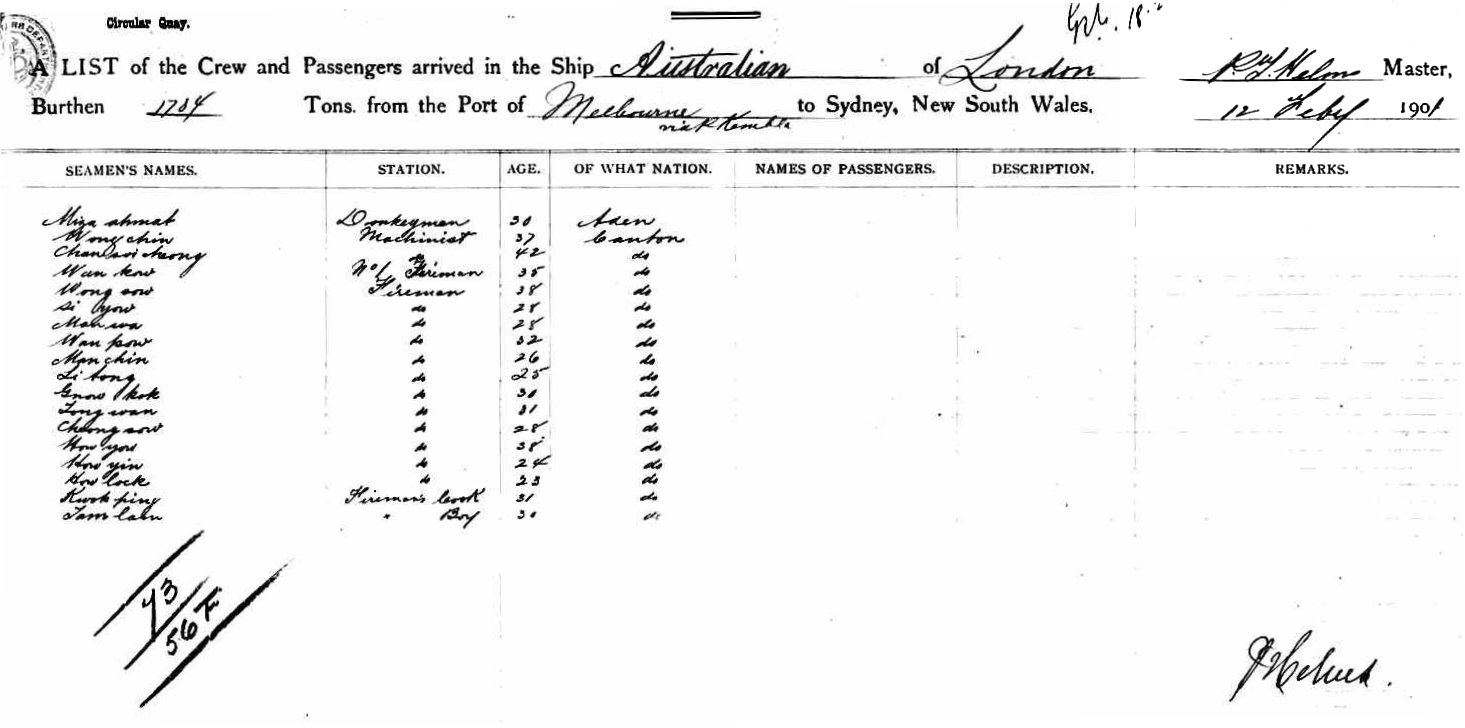 Circular Quay.
A LIST of the Crew and Passengers arrived in the Ship Australian of London Master,
Burthen 1784 Tons. from the Port of Melbourne to Sydney, New South Wales, 12 Feby 1901
via P Kembla
SEAMEN'S NAMES. STATION. AGE. OF WHAT NATION. NAMES OF PASSENGERS. DESCRIPTION. REMARKS.
Miza ahmat Donkeyman 30 Aden
Wong chin Machinist 37 Canton
Chan soi cheong do 42 do
Wan kow No 1 Fireman 35 do
Wong sow Fireman 38 do
Si yow do 28 do
Man wa do 28 do
Wan pow do 32 do
Man chin do 26 do
Li tong do 25 do
Gnow kok do 30 do
Tong wan do 31 do
Cheong sow do 28 do
How you do 38 do
How yin do 24 do
How lock do 23 do
Kwok ping Fireman's Cook 31 do
Tam laen " Boy 30 do
73
56 F